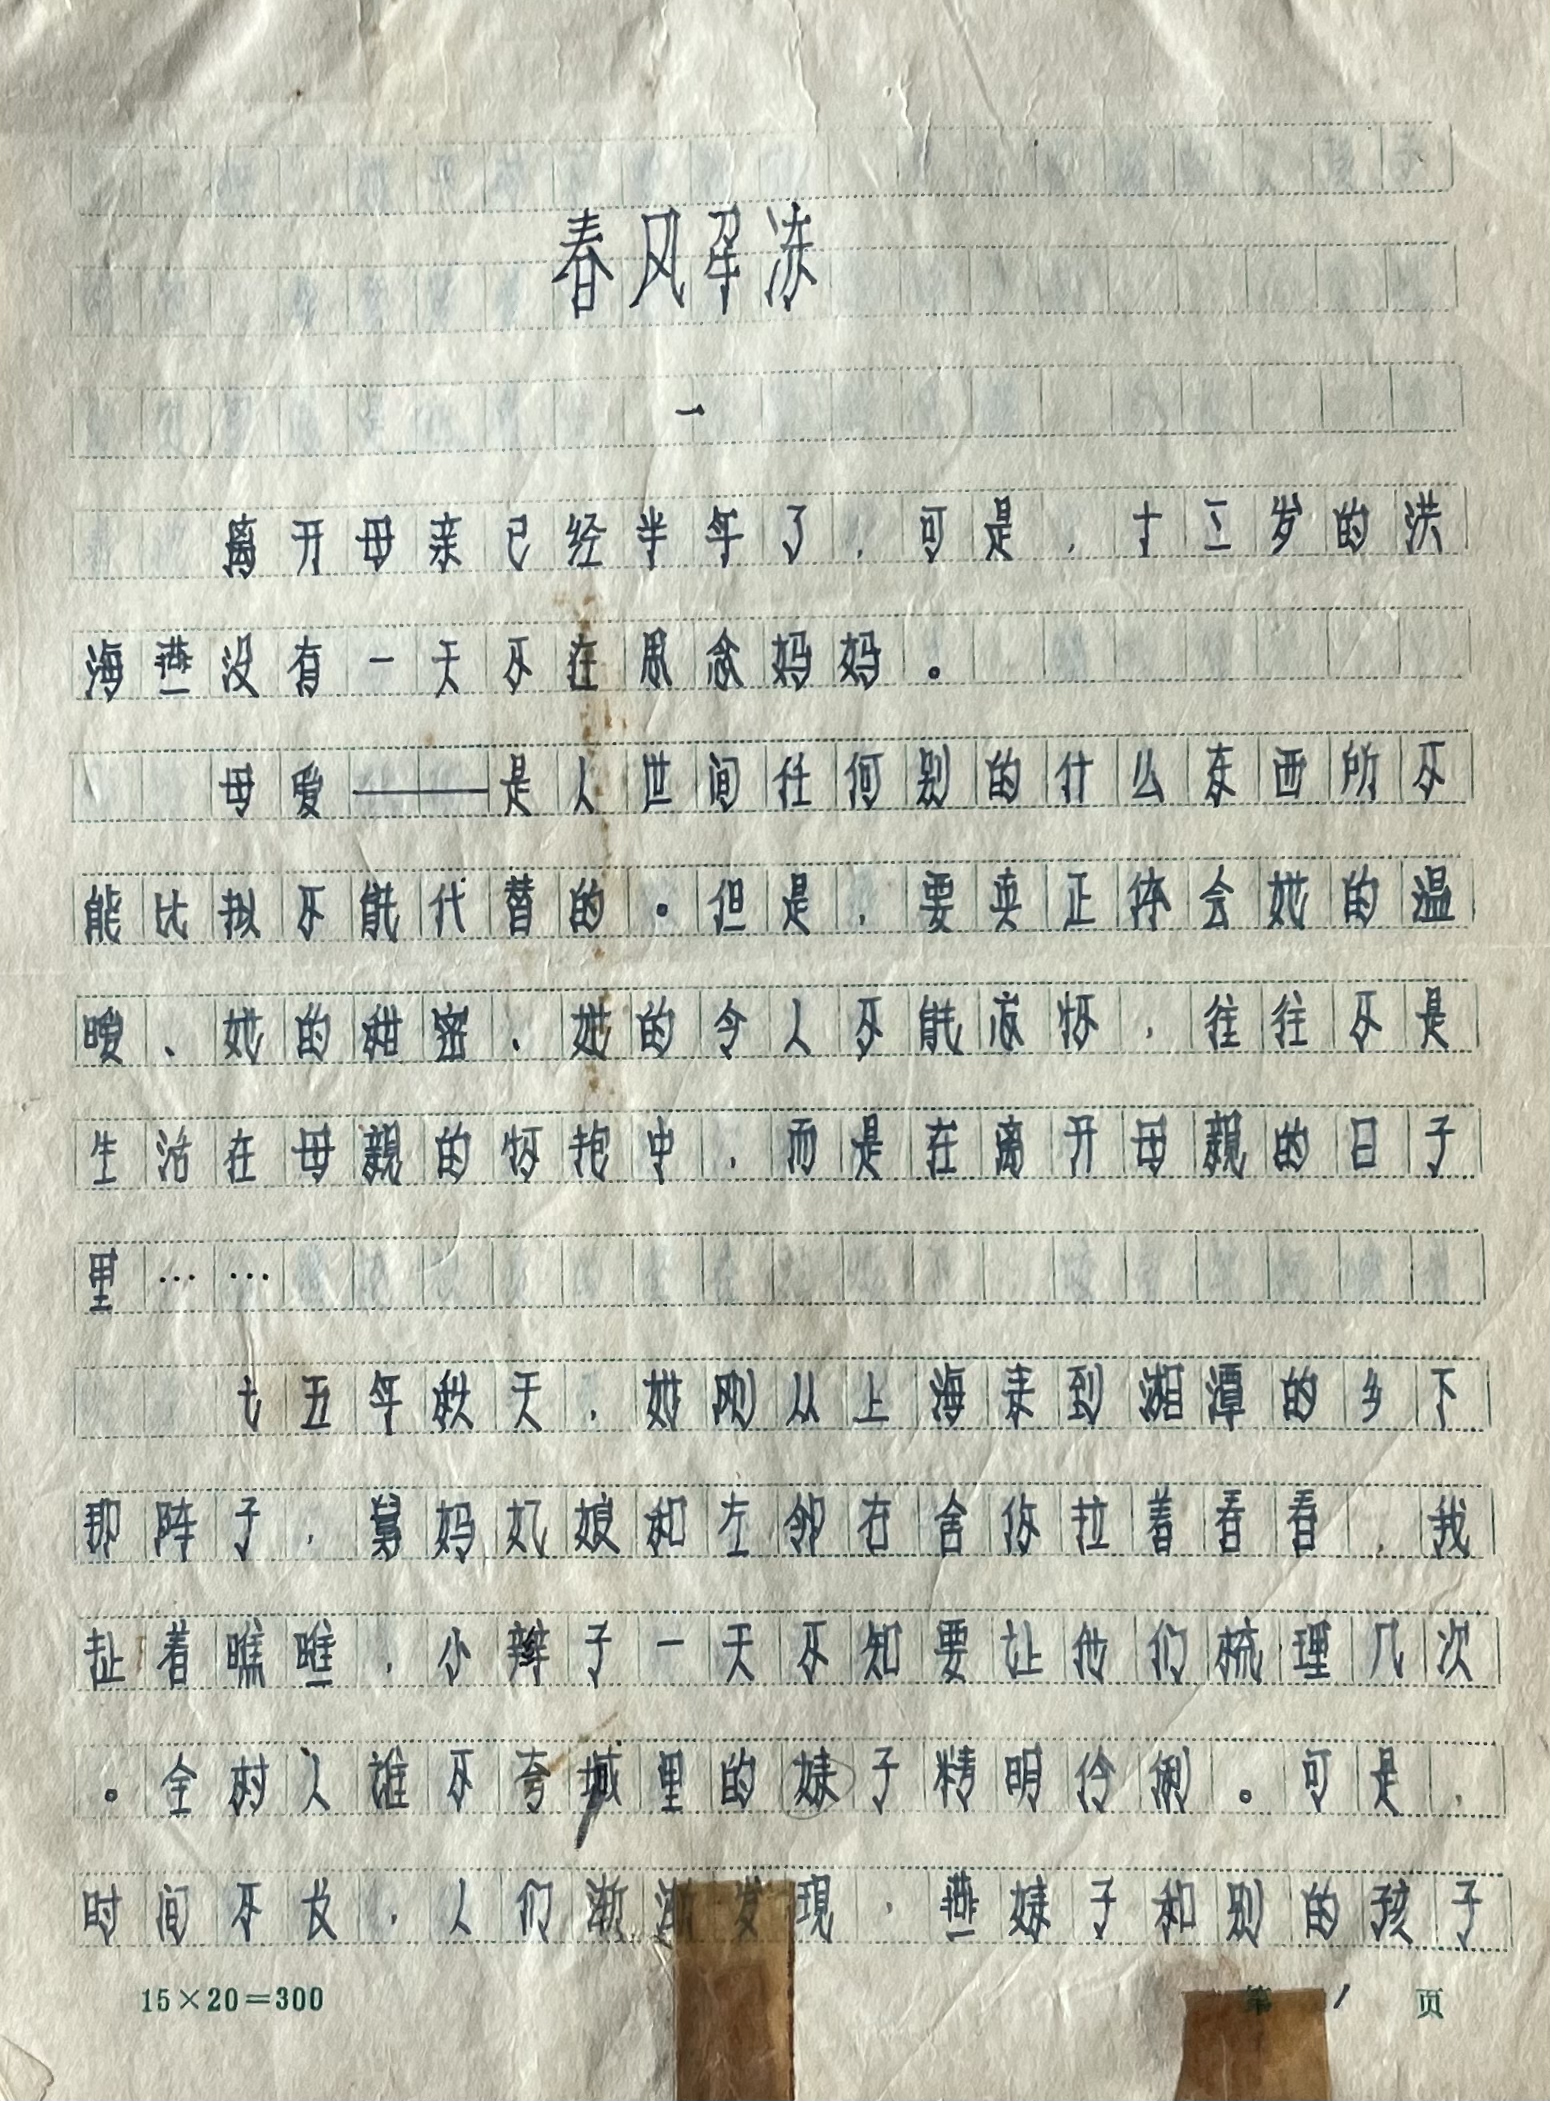 春风解冻
一
离开母亲已经半年了，可是，十三岁的洪
海燕没有一天不在思念妈妈。
母爱——是人世间任何别的什么东西所不
能比拟不能代替的。但是，要真正体会她的温
暖、她的甜密、她的令人不能忘怀，往往不是
生活在母親的怀抱中，而是在离开母親的日子
里……
七五年秋天，她刚从上海来到湘潭的乡下
那阵子，舅妈儿娘和左邻右舍你拉着看看，我
扯着瞧瞧，小辫子一天不知要让他们梳理几次
。全村人谁不夸城里的妹子精明伶俐。可是，
时间不长，人们渐渐发现，燕妹子和别的孩子
15×20=300
第 1 页